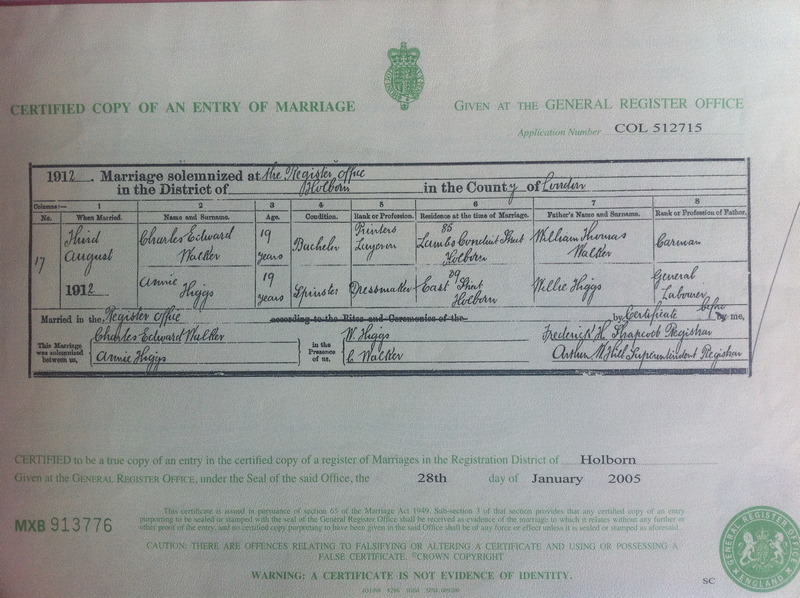 CERTIFIED COPY OF AN ENTRY OF MARRIAGE
GIVEN AT THE GENERAL REGISTER OFFICE
Application Number COL 512715
1912. Marriage solemnized at the Register Office
in the District of Holborn in the County of London
Columns:— 1 2 3 4 5 6 7 8
No. When Married. Name and Surname. Age. Condition. Rank or Profession. Residence at the time of Marriage. Father's Name and Surname. Rank or Profession of Father.
17 Third August 1912 Charles Edward Walker 19 years Bachelor Printers 85 Lambs Conduit Street Holborn William Thomas Walker Carman
Annie Higgs 19 years Spinster Dressmaker 29 East Street Holborn Willie Higgs General Labourer
Married in the Register Office according to the Rites and Ceremonies of the by Certificate before by me,
This Marriage was solemnized between us, Charles Edward Walker in the Presence of us, W. Higgs Frederick H. Registrar
Annie Higgs C Walker Arthur W Hill Superintendent Registrar
CERTIFIED to be a true copy of an entry in the certified copy of a register of Marriages in the Registration District of Holborn
Given at the GENERAL REGISTER OFFICE, under the Seal of the said Office, the 28th day of January 2005
MXB 913776
This certificate is issued in pursuance of section 65 of the Marriage Act 1949. Sub-section 3 of that section provides that any certified copy of an entry
purporting to be sealed or stamped with the seal of the General Register Office shall be received as evidence of the marriage to which it relates without any further or
other proof of the entry, and no certified copy purporting to have been given in the said Office shall be of any force or effect unless it is sealed or stamped as aforesaid.
CAUTION: THERE ARE OFFENCES RELATING TO FALSIFYING OR ALTERING A CERTIFICATE AND USING OR POSSESSING A
FALSE CERTIFICATE. ©CROWN COPYRIGHT
WARNING: A CERTIFICATE IS NOT EVIDENCE OF IDENTITY.
SC
GENERAL REGISTER OFFICE
ENGLAND